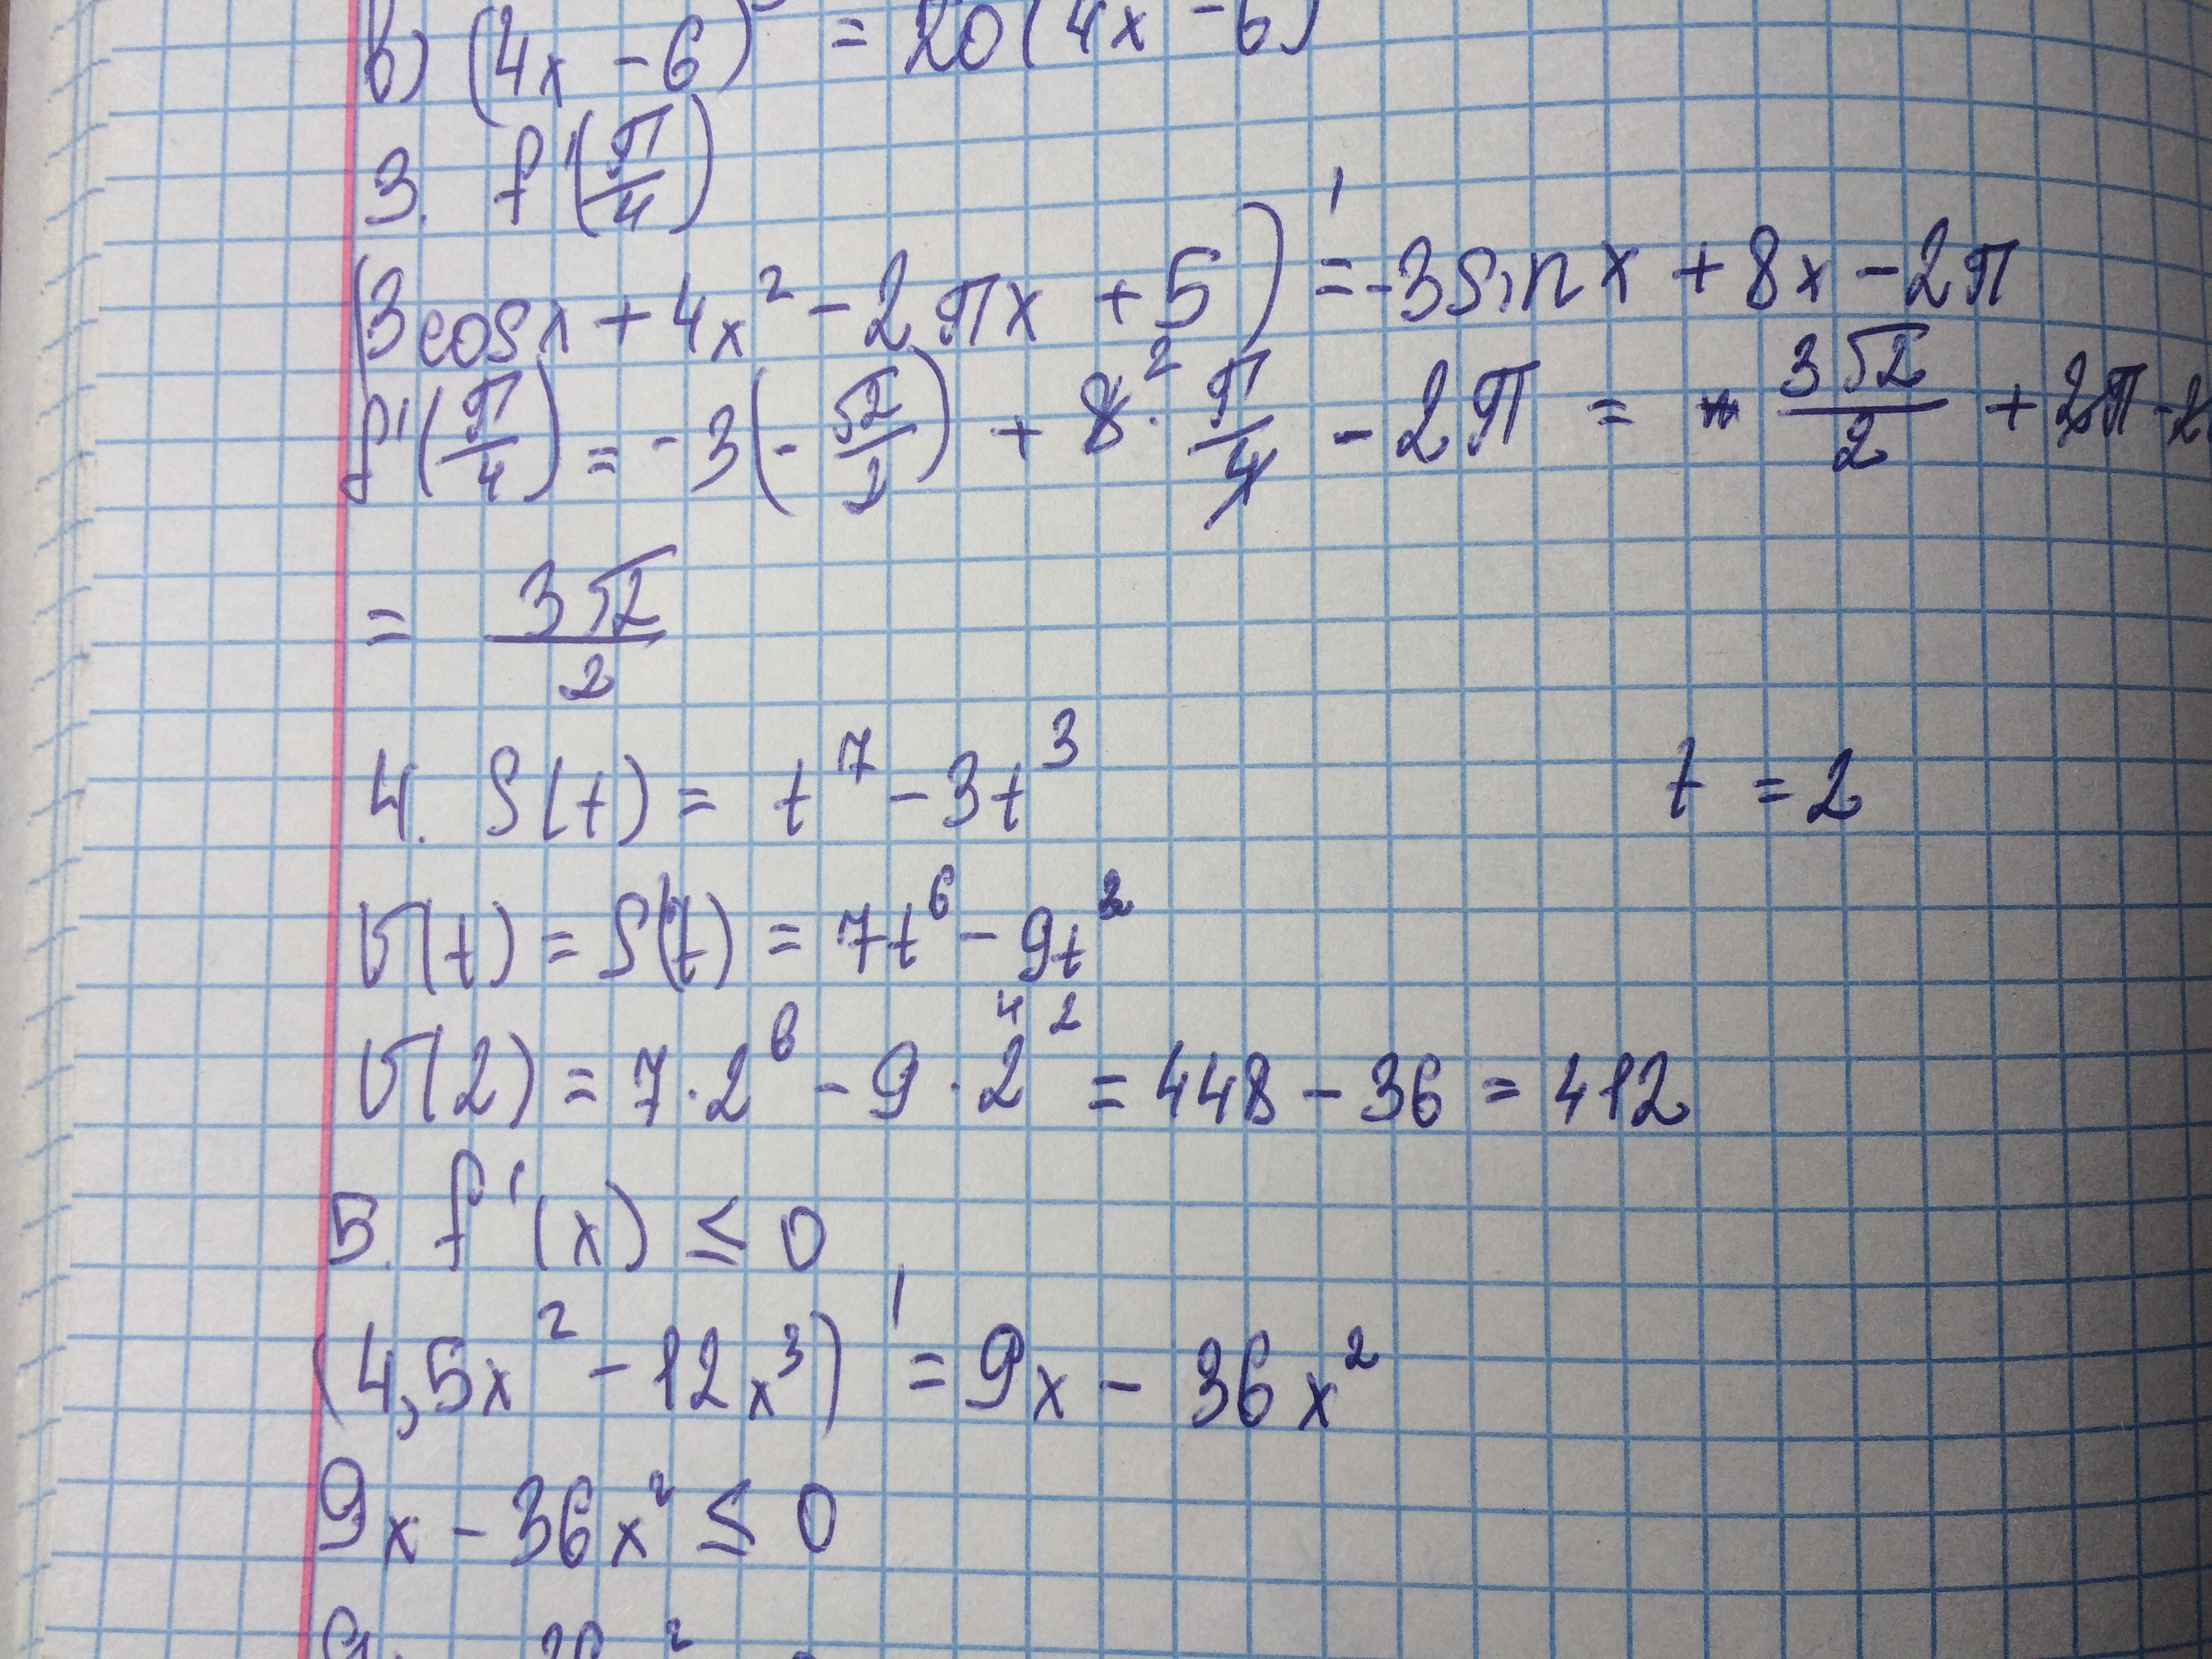 в) (4x - 6) = 20(4x - 6)
3. f'(π/4)
(3cosx + 4x² - 2πx + 5)' = -3sinx + 8x - 2π
f'(π/4) = -3(-√2/2) + 8² · π/4 - 2π = 3√2/2 + 2π - 2
= 3√2/2
4. S(t) = t⁷ - 3t³ t = 2
V(t) = S'(t) = 7t⁶ - 9t²
V(2) = 7·2⁶ - 9·2² ⁴ = 448 - 36 = 412
5. f'(x) ≤ 0
(4,5x² - 12x³)' = 9x - 36x²
9x - 36x² ≤ 0